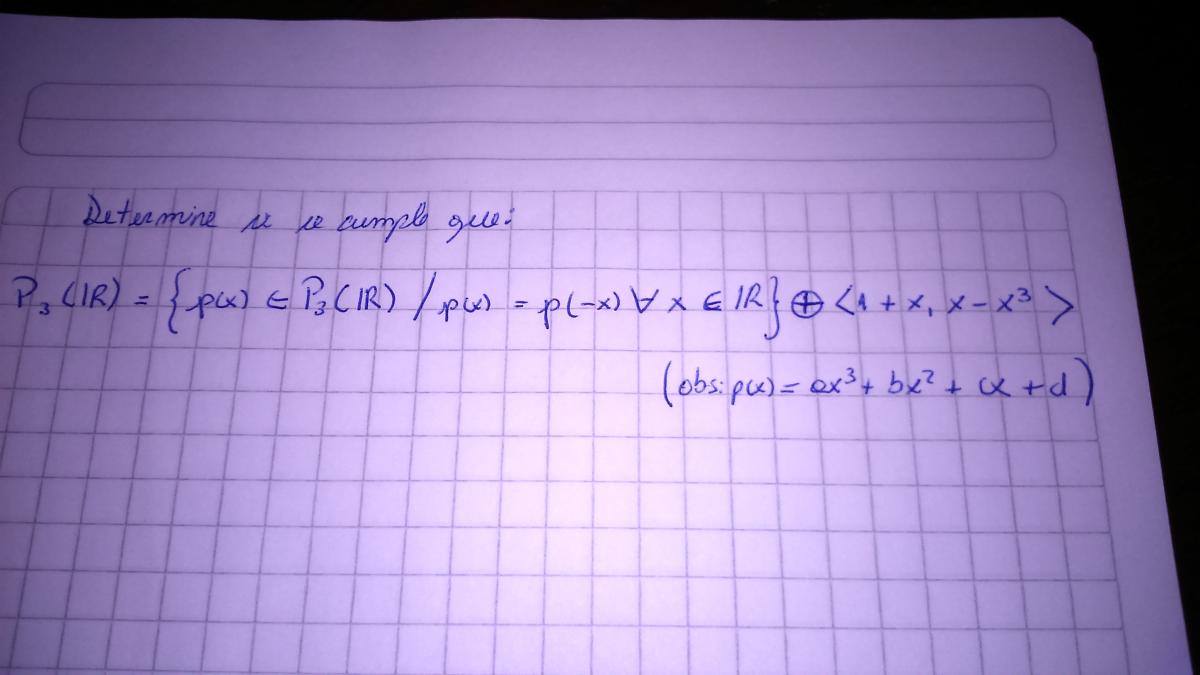 Determine si se cumple que:
P₃(ℝ) = {p(x) ∈ P₃(ℝ) / p(x) = p(-x) ∀ x ∈ ℝ} ⊕ <1 + x, x - x³>
(obs: p(x) = ax³ + bx² + cx + d)